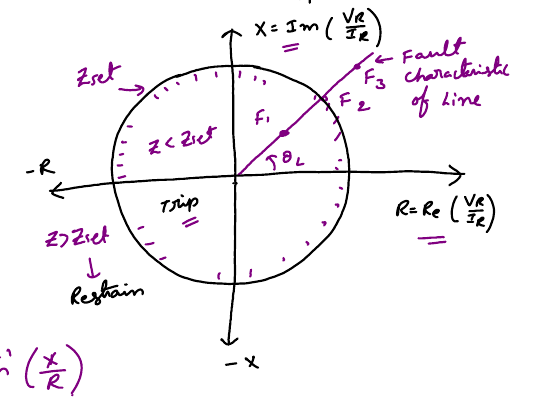 X = Im (VR/IR)
Zset
Fault
characteristic
of Line
F3
F2
F1
Z < Zset
θL
-R
Trip
R = Re (VR/IR)
Z > Zset
Restrain
-X
(X/R)